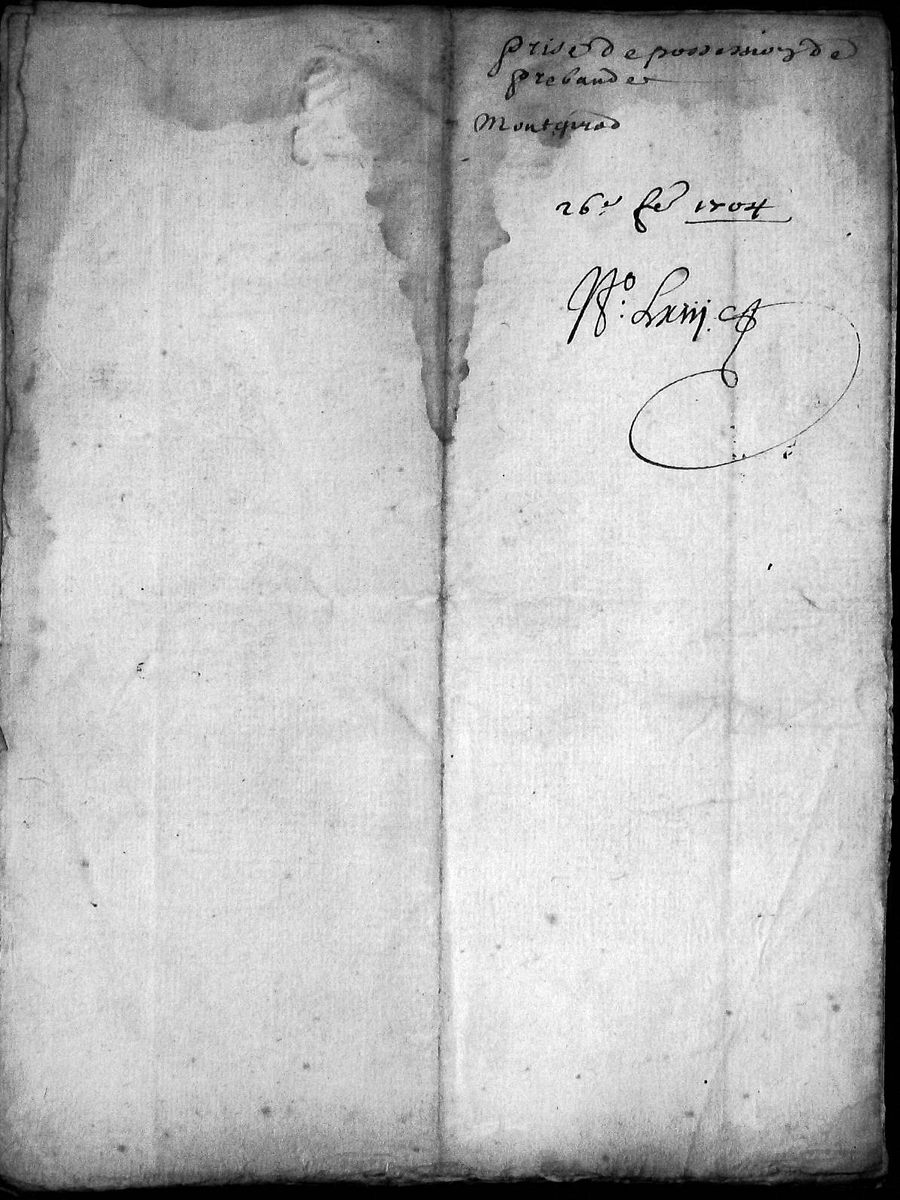 prise de possession de
prebande
26e fer 1704
No. Lxiij.